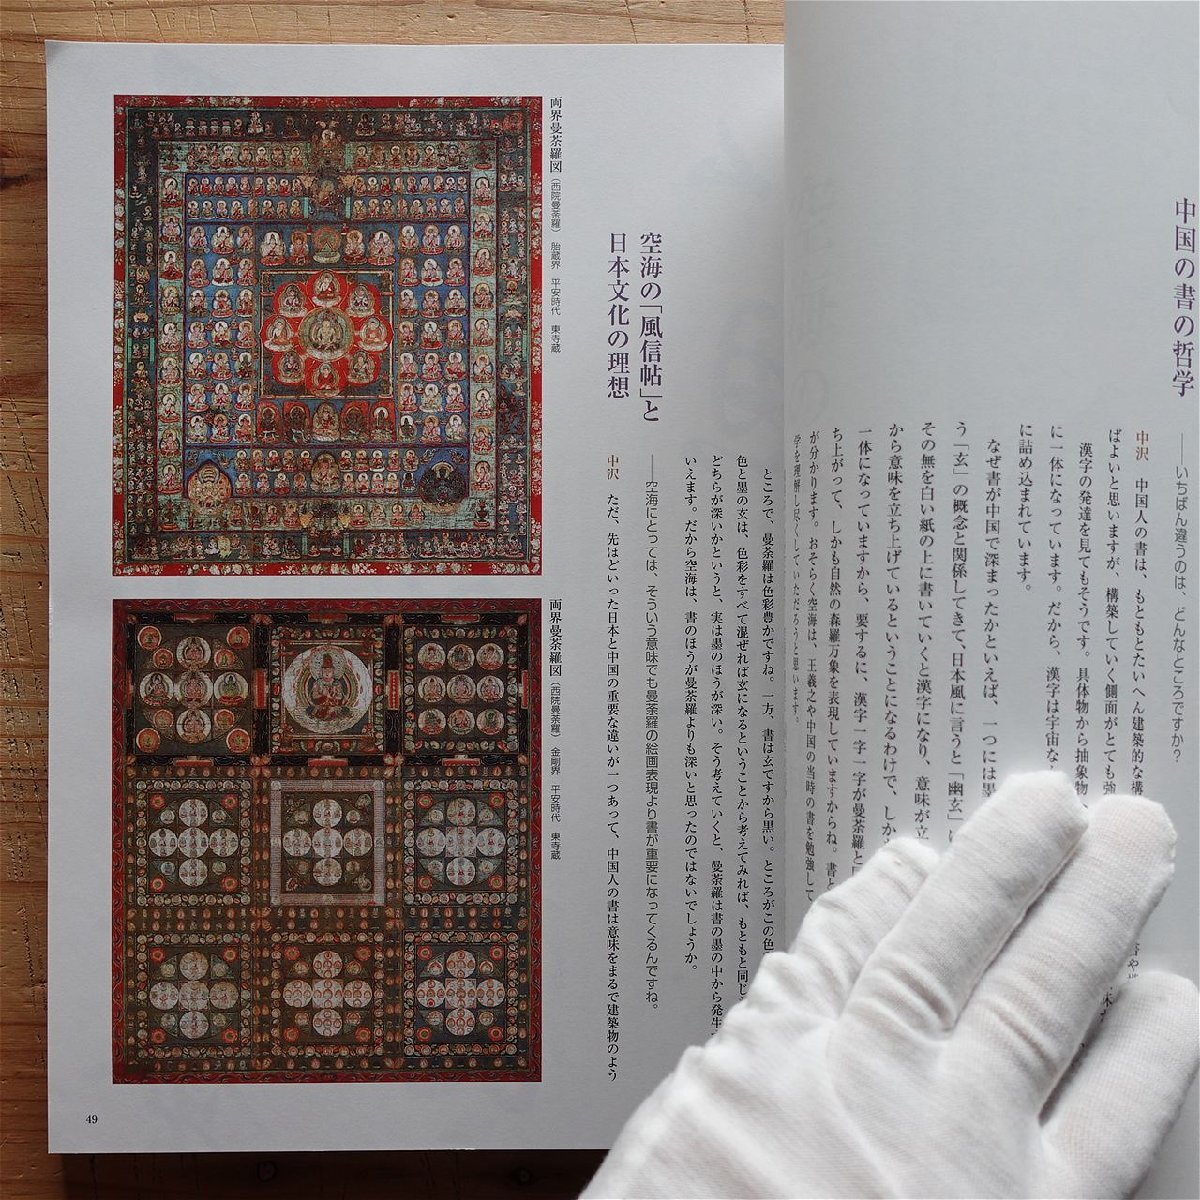 中国の書の哲学
――いちばん違うのは、どんなところですか?
中沢　中国人の書は、もともとたいへん建築的な構
ばよいと思いますが、構築していく側面がとても強
漢字の発達を見てもそうです。具体物から抽象物
に一体になっています。だから、漢字は宇宙な
に詰め込まれています。
なぜ書が中国で深まったかといえば、一つには墨
う「玄」の概念と関係してきて、日本風に言うと「幽玄」に
その無を白い紙の上に書いていくと漢字になり、意味が立
から意味を立ち上げているということになるわけで、しか
一体になっていますから、要するに、漢字一字一字が曼荼羅と
ち上がって、しかも自然の森羅万象を表現していますからね。書と
が分かります。おそらく空海は、王羲之や中国の当時の書を勉強して
学を理解し尽くしていただろうと思います。
ところで、曼荼羅は色彩豊かですね。一方、書は玄ですから黒い。ところがこの色
色と墨の玄は、色彩をすべて混ぜれば玄になるということから考えてみれば、もともと同じ
どちらが深いかというと、実は墨のほうが深い。そう考えていくと、曼荼羅は書の墨の中から発生
いえます。だから空海は、書のほうが曼荼羅よりも深いと思ったのではないでしょうか。
空海の「風信帖」と
日本文化の理想
――空海にとっては、そういう意味でも曼荼羅の絵画表現より書が重要になってくるんですね。
中沢　ただ、先ほどいった日本と中国の重要な違いが一つあって、中国人の書は意味をまるで建築物のよう
両界曼荼羅図（西院曼荼羅）　胎蔵界　平安時代　東寺蔵
両界曼荼羅図（西院曼荼羅）　金剛界　平安時代　東寺蔵
49